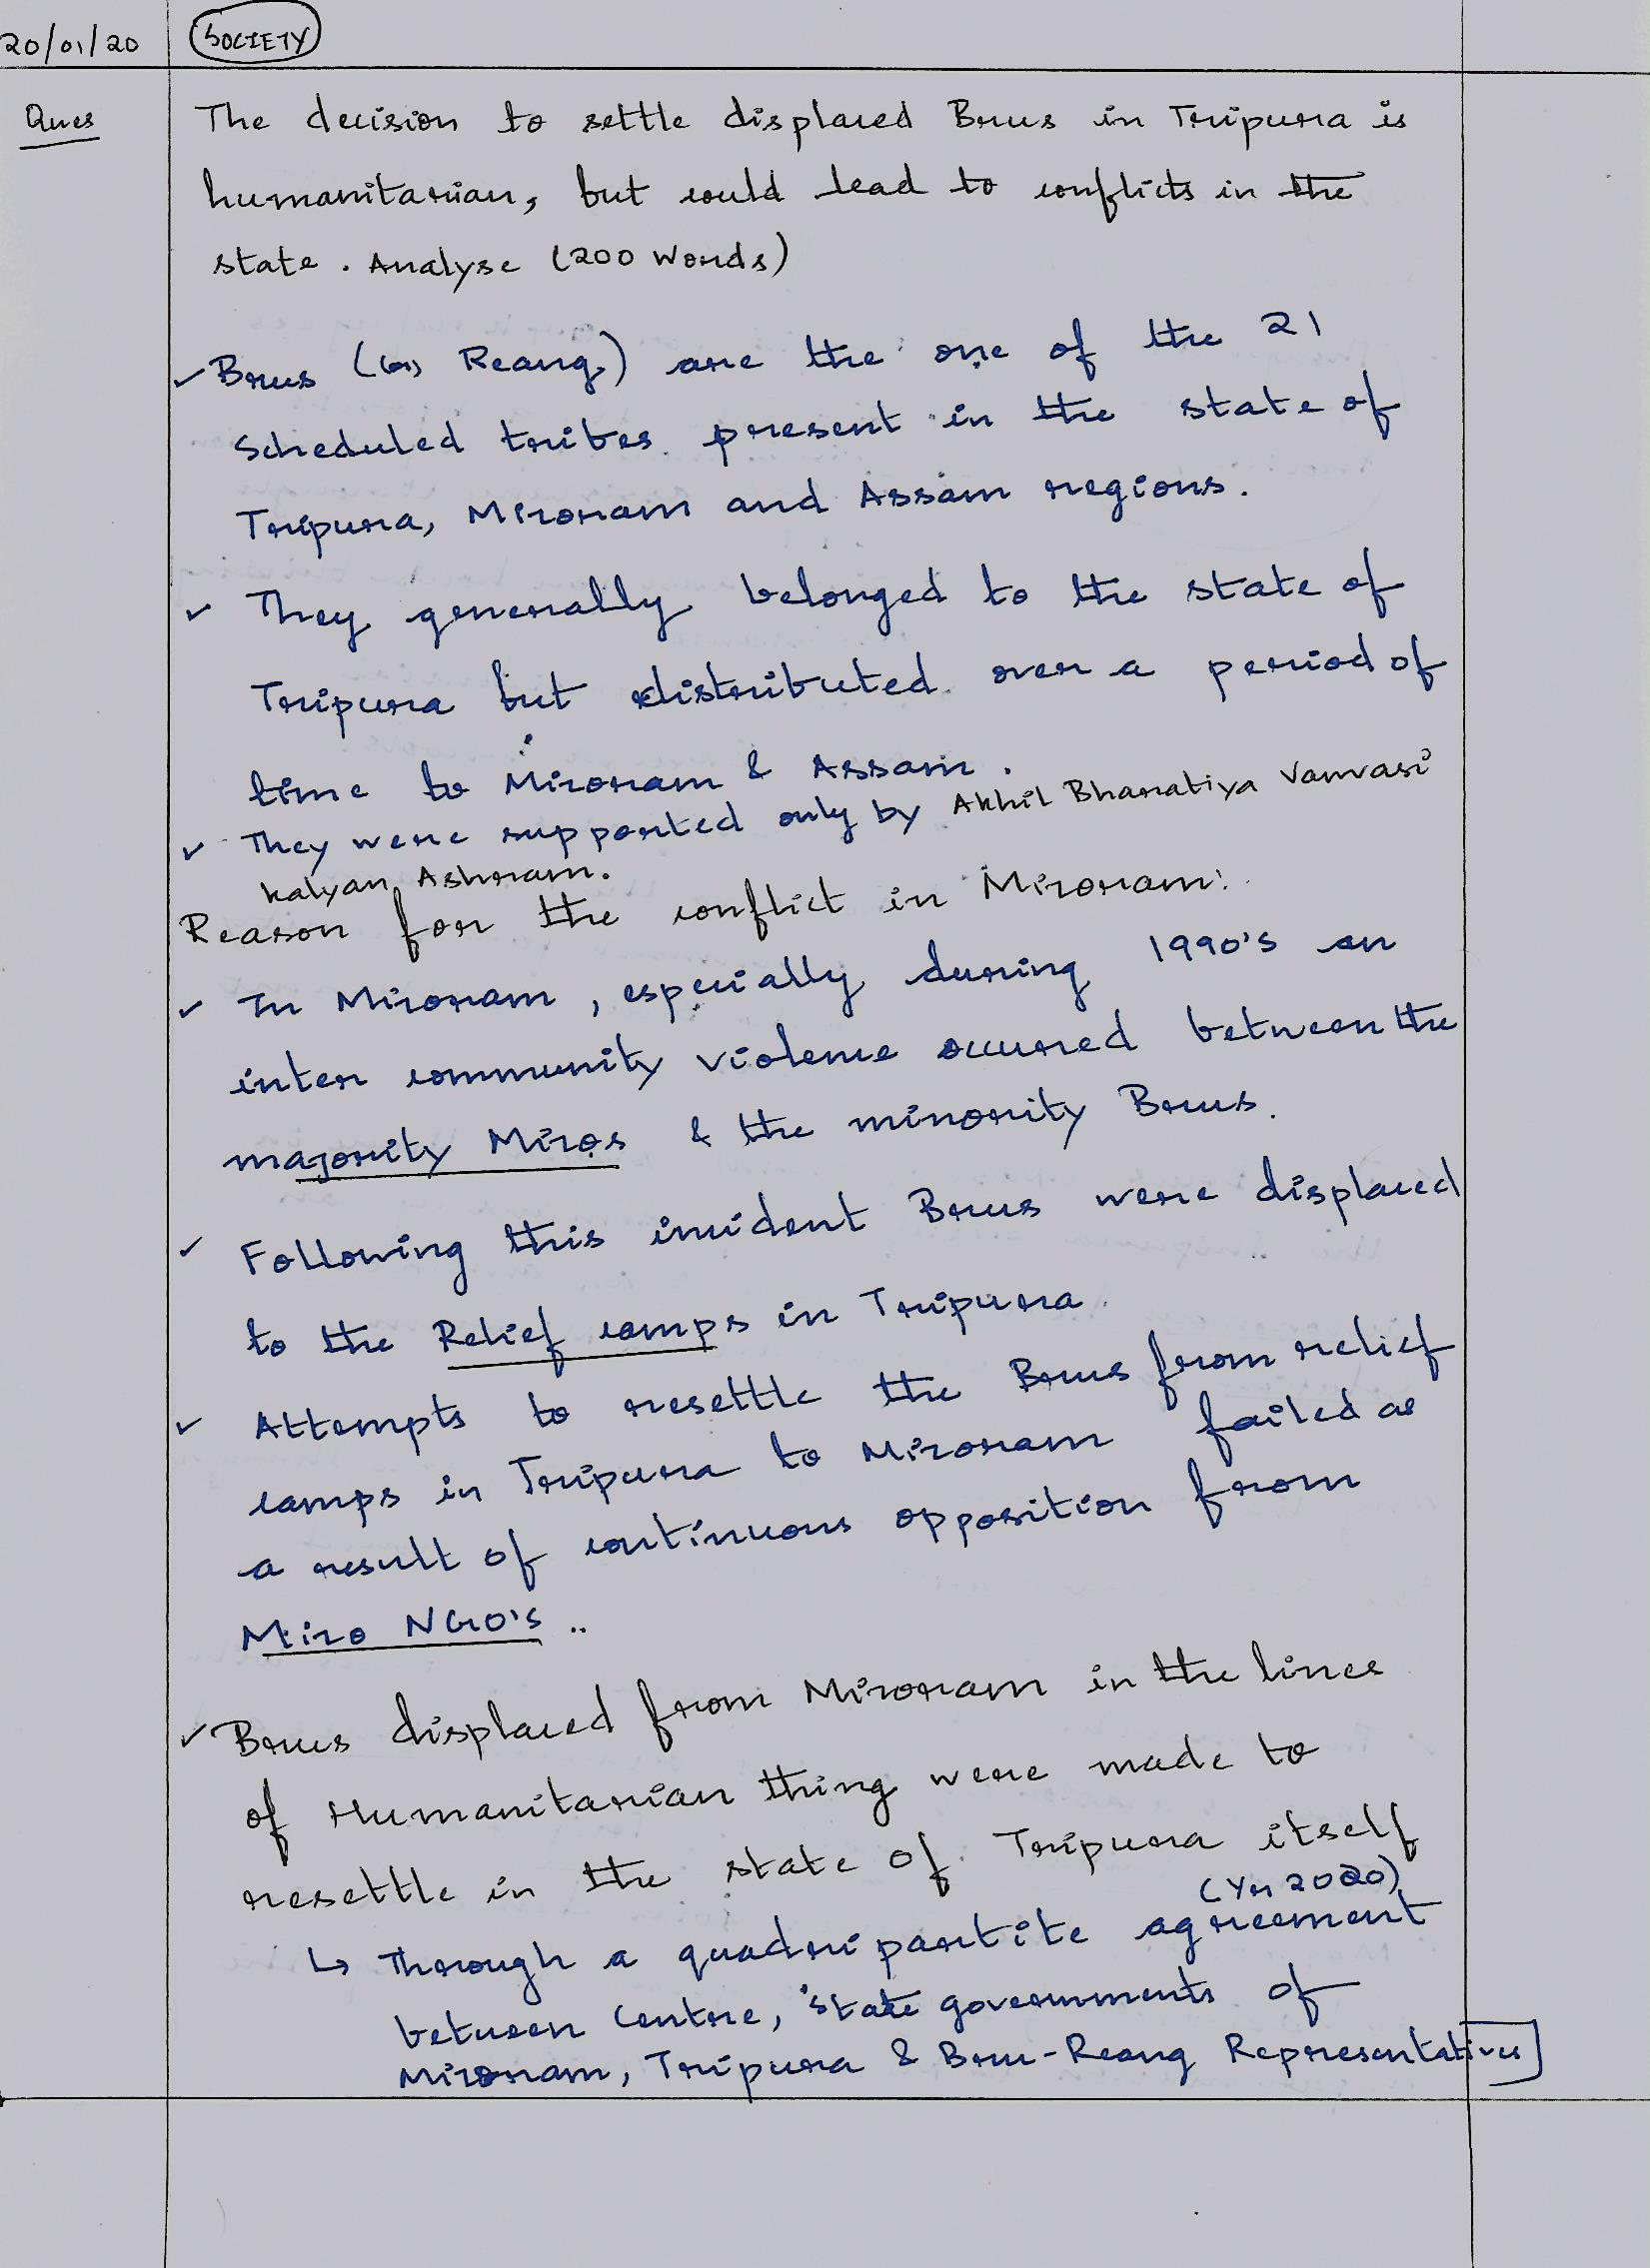 20/01/20 SOCIETY
Ques The decision to settle displaced Brus in Tripura is
humanitarian, but could lead to conflicts in the
state. Analyse (200 Words)
✓ Brus (or Reang) are the one of the 21
Scheduled tribes present in the state of
Tripura, Mizoram and Assam regions.
✓ They generally belonged to the state of
Tripura but distributed over a period of
time to Mizoram & Assam.
✓ They were supported only by Akhil Bharatiya Vanvasi
kalyan Ashram.
Reason for the conflict in Mizoram:
✓ In Mizoram, especially during 1990's an
inter community violence occured between the
majority Mizos & the minority Brus.
✓ Following this incident Brus were displaced
to the Relief camps in Tripura.
✓ Attempts to resettle the Brus from relief
camps in Tripura to Mizoram failed as
a result of continuous opposition from
Mizo NGO's ..
✓ Brus displaced from Mizoram in the lines
of Humanitarian thing were made to
resettle in the state of Tripura itself
(Yr 2020)
↳ Through a quadripartite agreement
between Centre, State governments of
Mizoram, Tripura & Bru-Reang Representatives